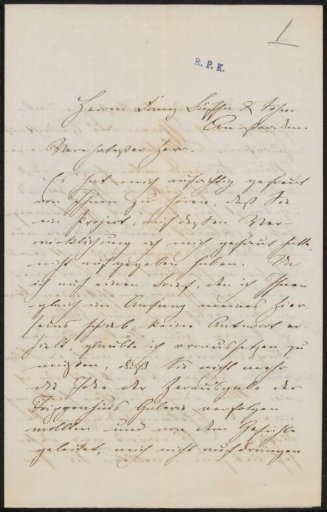 1.
R. P. K.
Herrn Franz Buffa & Söhne
Amsterdam
Verehrtester Herr.
Es hat mich aufrichtig gefreut
von Ihnen zu hören, daß Sie
ein Projekt, auf dessen Ver-
wirklichung ich mich gefreut hatte,
nicht aufgegeben haben. Da
ich auf einen Brief, den ich Ihnen
gleich im Anfang meines Hier
seins schrieb keine Antwort er
hielt, glaubte ich voraussetzen zu
müssen, daß Sie nicht mehr
die Idee der Herausgabe der
Trippenhuis Galerie verfolgen
wollten und von dem Gefühle
geleitet, mich nicht aufdrängen